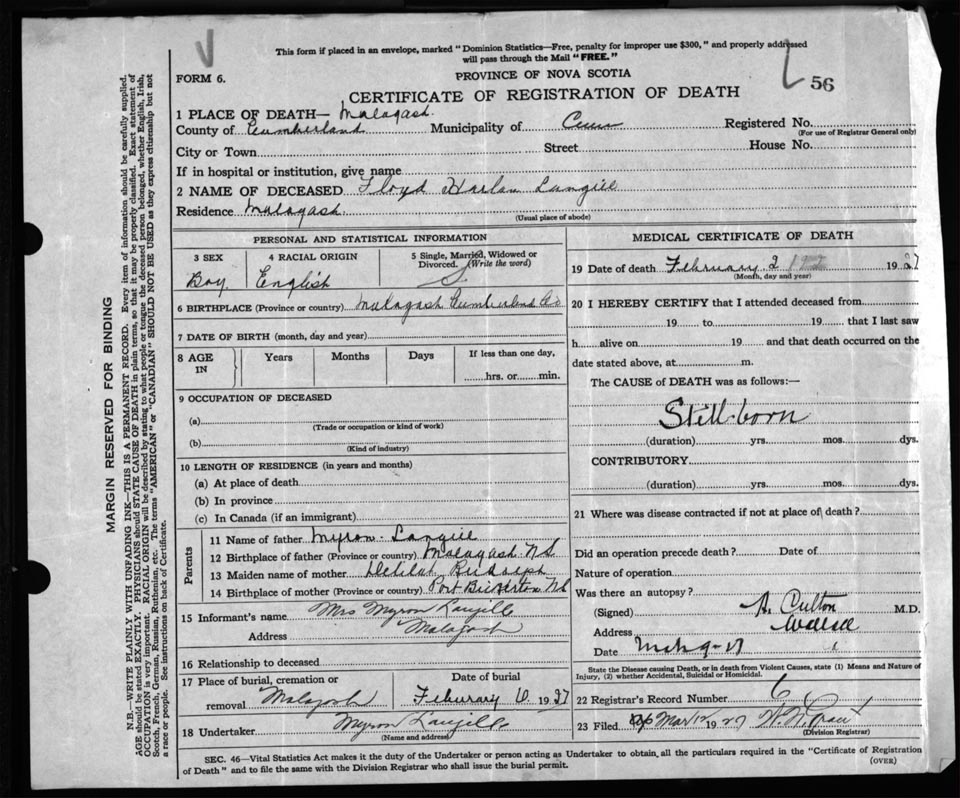 This form if placed in an envelope, marked "Dominion Statistics—Free, penalty for improper use $300," and properly addressed
will pass through the Mail "FREE."
FORM 6.
PROVINCE OF NOVA SCOTIA
56
CERTIFICATE OF REGISTRATION OF DEATH
1 PLACE OF DEATH— Malagash
County of Cumberland Municipality of Cum Registered No.
(For use of Registrar General only)
City or Town Street House No.
If in hospital or institution, give name
2 NAME OF DECEASED Floyd Harlan Langill
Residence Malagash
(Usual place of abode)
PERSONAL AND STATISTICAL INFORMATION
3 SEX 4 RACIAL ORIGIN 5 Single, Married, Widowed or
Divorced. (Write the word)
Boy English S
6 BIRTHPLACE (Province or country) Malagash Cumberland Co
7 DATE OF BIRTH (month, day and year)
8 AGE IN Years Months Days If less than one day,
hrs. or min.
9 OCCUPATION OF DECEASED
(a)
(Trade or occupation or kind of work)
(b)
(Kind of industry)
10 LENGTH OF RESIDENCE (in years and months)
(a) At place of death
(b) In province
(c) In Canada (if an immigrant)
Parents
11 Name of father Myron Langill
12 Birthplace of father (Province or country) Malagash N.S.
13 Maiden name of mother Delilah Rudolph
14 Birthplace of mother (Province or country) Port Bickerton N.S
15 Informant's name Mrs Myron Langill
Address Malagash
16 Relationship to deceased
17 Place of burial, cremation or Date of burial
removal Malagash February 6 1927
18 Undertaker Myron Langill
(Name and address)
MEDICAL CERTIFICATE OF DEATH
19 Date of death February 2 192 1927
(Month, day and year)
20 I HEREBY CERTIFY that I attended deceased from
19 to 19 that I last saw
h alive on 19 and that death occurred on the
date stated above, at m.
The CAUSE of DEATH was as follows:—
Still-born
(duration) yrs. mos. dys.
CONTRIBUTORY
(duration) yrs. mos. dys.
21 Where was disease contracted if not at place of death?
Did an operation precede death? Date of
Nature of operation
Was there an autopsy?
(Signed) M.D.
Address Wallace
Date Mch 9-27
State the Disease causing Death, or in death from Violent Causes, state (1) Means and Nature of
Injury, (2) whether Accidental, Suicidal or Homicidal.
22 Registrar's Record Number 6
23 Filed Mar 12 1927
(Division Registrar)
SEC. 46—Vital Statistics Act makes it the duty of the Undertaker or person acting as Undertaker to obtain all the particulars required in the "Certificate of Registration
of Death" and to file the same with the Division Registrar who shall issue the burial permit.
(OVER)
MARGIN RESERVED FOR BINDING
N.B.—WRITE PLAINLY WITH UNFADING INK—THIS IS A PERMANENT RECORD. Every item of information should be carefully supplied.
AGE should be stated EXACTLY. PHYSICIANS should STATE CAUSE OF DEATH in plain terms, so that it may be properly classified. Exact statement of
OCCUPATION is very important. RACIAL ORIGIN will be described by stating to what people or tongue the deceased person belonged, whether English, Irish,
Scotch, French, German, Russian, Ruthenian, etc. The terms "AMERICAN" or "CANADIAN" SHOULD NOT BE USED as they express citizenship but not
a race or people. See instructions on back of Certificate.